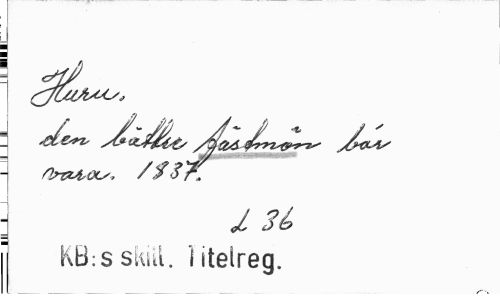 Huru,
den bättre fästmön bör
vara. 1837.
L 36
KB:s skill. Titelreg.